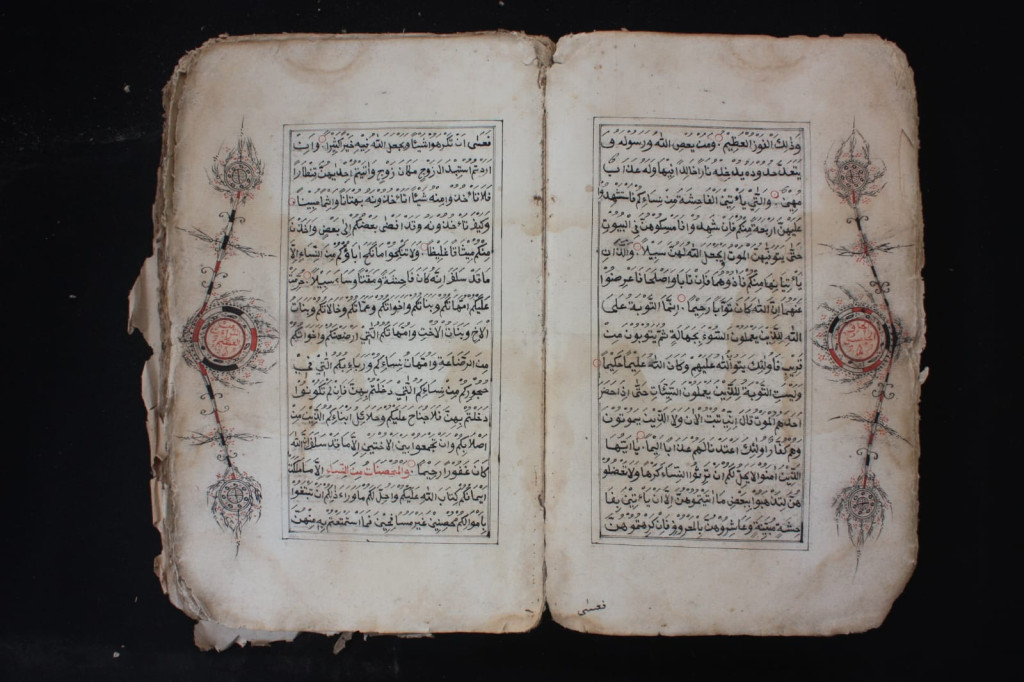 وَذٰلِكَ الْفَوْزُ الْعَظِيْمُ وَمَنْ يَعْصِ اللهَ وَرَسُوْلَهُ وَ
يَتَعَدَّ حُدُوْدَهُ يُدْخِلْهُ نَارًا خَالِدًا فِيْهَا وَلَهُ عَذَابٌ
مُهِيْنٌ وَالّٰتِيْ يَأْتِيْنَ الْفَاحِشَةَ مِنْ نِسَاءِكُمْ فَاسْتَشْهِدُوْا
عَلَيْهِنَّ اَرْبَعَةً مِنْكُمْ فَاِنْ شَهِدُوْا فَامْسِكُوْهُنَّ فِي الْبُيُوْتِ
حَتّٰى يَتَوَفّٰيهُنَّ الْمَوْتُ اَوْ يَجْعَلَ اللهُ لَهُنَّ سَبِيْلًا وَالَّذَانِ
يَأْتِيَانِهَا مِنْكُمْ فَأٰذُوْهُمَا فَاِنْ تَابَا وَاَصْلَحَا فَاَعْرِضُوْا
عَنْهُمَا اِنَّ اللهَ كَانَ تَوَّابًا رَحِيْمًا اِنَّمَا التَّوْبَةُ عَلَى
اللهِ لِلَّذِيْنَ يَعْمَلُوْنَ السُّوْءَ بِجَهَالَةٍ ثُمَّ يَتُوْبُوْنَ مِنْ
قَرِيْبٍ فَاُولٰئِكَ يَتُوْبُ اللهُ عَلَيْهِمْ وَكَانَ اللهُ عَلِيْمًا حَكِيْمًا
وَلَيْسَتِ التَّوْبَةُ لِلَّذِيْنَ يَعْمَلُوْنَ السَّيِّئَاتِ حَتّٰى اِذَا حَضَرَ
اَحَدَهُمُ الْمَوْتُ قَالَ اِنِّيْ تُبْتُ الْاٰنَ وَلَا الَّذِيْنَ يَمُوْتُوْنَ
وَهُمْ كُفَّارٌ اُولٰئِكَ اَعْتَدْنَا لَهُمْ عَذَابًا اَلِيْمًا يَا اَيُّهَا
الَّذِيْنَ اٰمَنُوْا لَا يَحِلُّ لَكُمْ اَنْ تَرِثُوا النِّسَاءَ كَرْهًا وَلَا تَعْضُلُوْ
هُنَّ لِتَذْهَبُوْا بِبَعْضِ مَا اٰتَيْتُمُوْهُنَّ اِلَّا اَنْ يَأْتِيْنَ بِفَا
حِشَةٍ مُبَيِّنَةٍ وَعَاشِرُوْهُنَّ بِالْمَعْرُوْفِ فَاِنْ كَرِهْتُمُوْهُنَّ
فعسى
فَعَسٰى اَنْ تَكْرَهُوْا شَيْئًا وَيَجْعَلَ اللهُ فِيْهِ خَيْرًا كَثِيْرًا وَاِنْ
اَرَدْتُمُ اسْتِبْدَالَ زَوْجٍ مَكَانَ زَوْجٍ وَاٰتَيْتُمْ اِحْدٰيهُنَّ قِنْطَارًا
فَلَا تَأْخُذُوْا مِنْهُ شَيْئًا اَتَأْخُذُوْنَهُ بُهْتَانًا وَاِثْمًا مُبِيْنًا
وَكَيْفَ تَأْخُذُوْنَهُ وَقَدْ اَفْضٰى بَعْضُكُمْ اِلٰى بَعْضٍ وَاَخَذْنَ
مِنْكُمْ مِيْثَاقًا غَلِيْظًا وَلَا تَنْكِحُوْا مَا نَكَحَ اٰبَاؤُكُمْ مِنَ النِّسَاءِ اِلَّا
مَا قَدْ سَلَفَ اِنَّهُ كَانَ فَاحِشَةً وَمَقْتًا وَسَاءَ سَبِيْلًا حُرِّمَتْ
عَلَيْكُمْ اُمَّهَاتُكُمْ وَبَنَاتُكُمْ وَاَخَوَاتُكُمْ وَعَمَّاتُكُمْ وَخَالَاتُكُمْ وَبَنَاتُ
الْاَخِ وَبَنَاتُ الْاُخْتِ وَاُمَّهَاتُكُمُ الّٰتِيْ اَرْضَعْنَكُمْ وَاَخَوَاتُكُمْ
مِنَ الرَّضَاعَةِ وَاُمَّهَاتُ نِسَاءِكُمْ وَرَبَاءِبُكُمُ الّٰتِيْ فِيْ
حُجُوْرِكُمْ مِنْ نِسَاءِكُمُ الّٰتِيْ دَخَلْتُمْ بِهِنَّ فَاِنْ لَمْ تَكُوْنُوْا
دَخَلْتُمْ بِهِنَّ فَلَا جُنَاحَ عَلَيْكُمْ وَحَلَاءِلُ اَبْنَاءِكُمُ الَّذِيْنَ مِنْ
اَصْلَابِكُمْ وَاَنْ تَجْمَعُوْا بَيْنَ الْاُخْتَيْنِ اِلَّا مَا قَدْ سَلَفَ اِنَّ اللهَ
كَانَ غَفُوْرًا رَحِيْمًا وَالْمُحْصَنَاتُ مِنَ النِّسَاءِ اِلَّا مَا مَلَكَتْ
اَيْمَانُكُمْ كِتَابَ اللهِ عَلَيْكُمْ وَاُحِلَّ لَكُمْ مَا وَرَاءَ ذٰلِكُمْ اَنْ تَبْتَغُوْا
بِاَمْوَالِكُمْ مُحْصِنِيْنَ غَيْرَ مُسَافِحِيْنَ فَمَا اسْتَمْتَعْتُمْ بِهِ مِنْهُنَّ